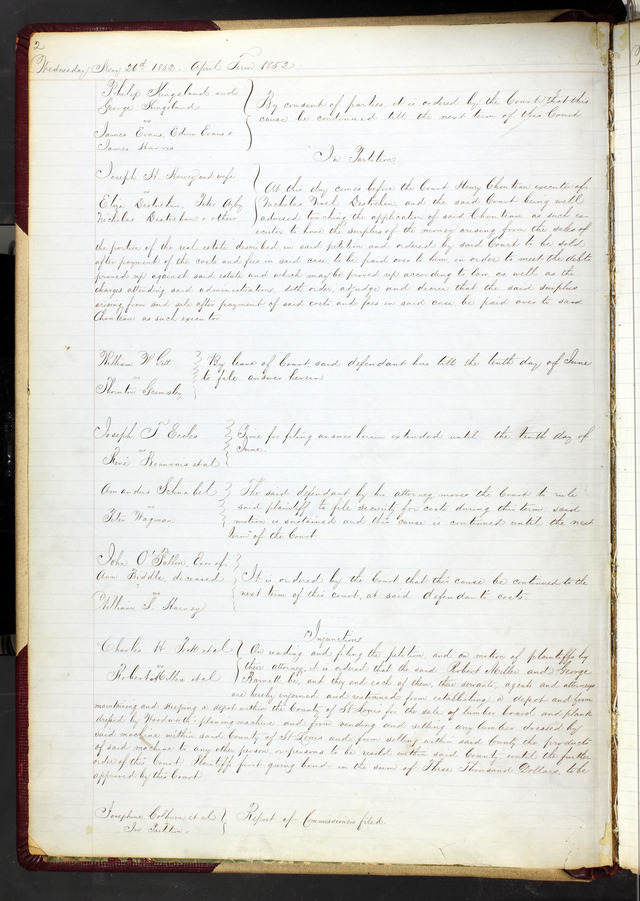 2
Wednesday May 26th 1852. April Term 1852
Philip Kingsland and
George Kingsland
vs
James Evans, Edwin Evans &
James Harris
By consent of parties it is ordered by the Court that this
cause be continued till the next term of this Court
In Partition
Joseph H. and wife
vs
Eliza Destrehan,
Nicholas Destrehan & others
At this day comes before the Court Henry Chouteau executor of
Nicholas Noel Destrehan and the said Court being well
advised touching the application of said Chouteau as such ex-
ecutor to have the surplus of the money arising from the sales of
the portion of the real estate described in said petition and ordered by said Court to be sold,
after payment of the costs and fees in said case to be paid over to him in order to meet the debts
proved up against said estate and which may be proved up according to law as well as the
charges attending said administration, doth order, adjudge and decree that the said surplus
arising from said sale after payment of said costs and fees in said case be paid over to said
Chouteau as such executor
William W
vs
Thornton Grimsley
By leave of Court said defendant has till the tenth day of June
to file answer herein
Joseph T Eccles
vs
René Beauvais et al
Time for filing answer herein extended until the tenth day of
June.
Amandus Schnabel
vs
Peter Wagman
The said defendant by his attorney moves the Court to rule
said plaintiff to file security for costs during this term said
motion is sustained and this cause is continued until the next
Term of the Court
John O'Fallon, Exor of
Ann Biddle, deceased
vs
William S. Harney
It is ordered by the Court that this cause be continued to the
next term of this court, at said defendants costs.
Injunction
Charles H. Peck et al
vs
Robert Miller et al
On reading and filing the petition and on motion of plaintiffs by
their attorney it is ordered that the said Robert Miller and George
Barnett be, and they and each of them, their servants, agents and attorneys
are hereby enjoined and restrained from establishing a depot and from
maintaining and keeping a depot within the County of St Louis for the sale of lumber boards and plank
dressed by Woodworth planing machine and from vending and selling any lumber dressed by
said machine within said County of St Louis and from selling within said County the products
of said machine to any other person or persons to be resold within said County until the further
order of this Court, Plaintiffs first giving bond in the sum of Three Thousand Dollars, to be
approved by this Court
Josephine Colburn et al
In Partition.
Report of Commissioners filed.